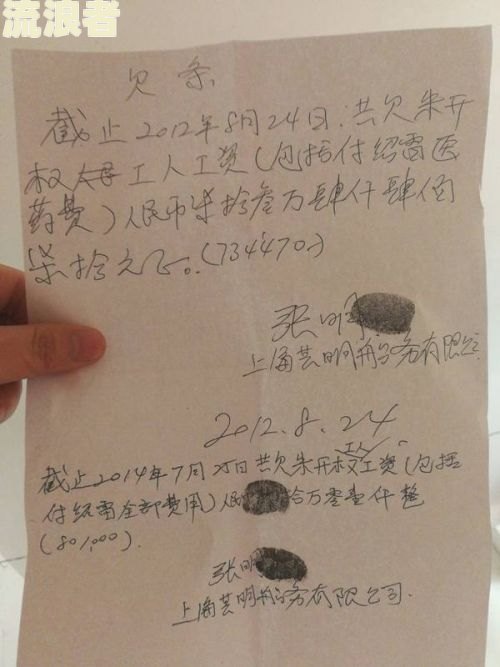 流浪者
欠条
截止2012年8月24日：共欠朱开
权 工人工资（包括付绍雷医
药费）人民币柒拾叁万肆仟肆佰
柒拾元正。(734470.)
张明
上海芸明 务有限公
2012.8.24
工人
截止2014年7月25日共欠朱开权工资（包括
付绍雷全部费用）人民 拾万零壹仟整
(801,000).
张明
上海芸明 务有限公司.